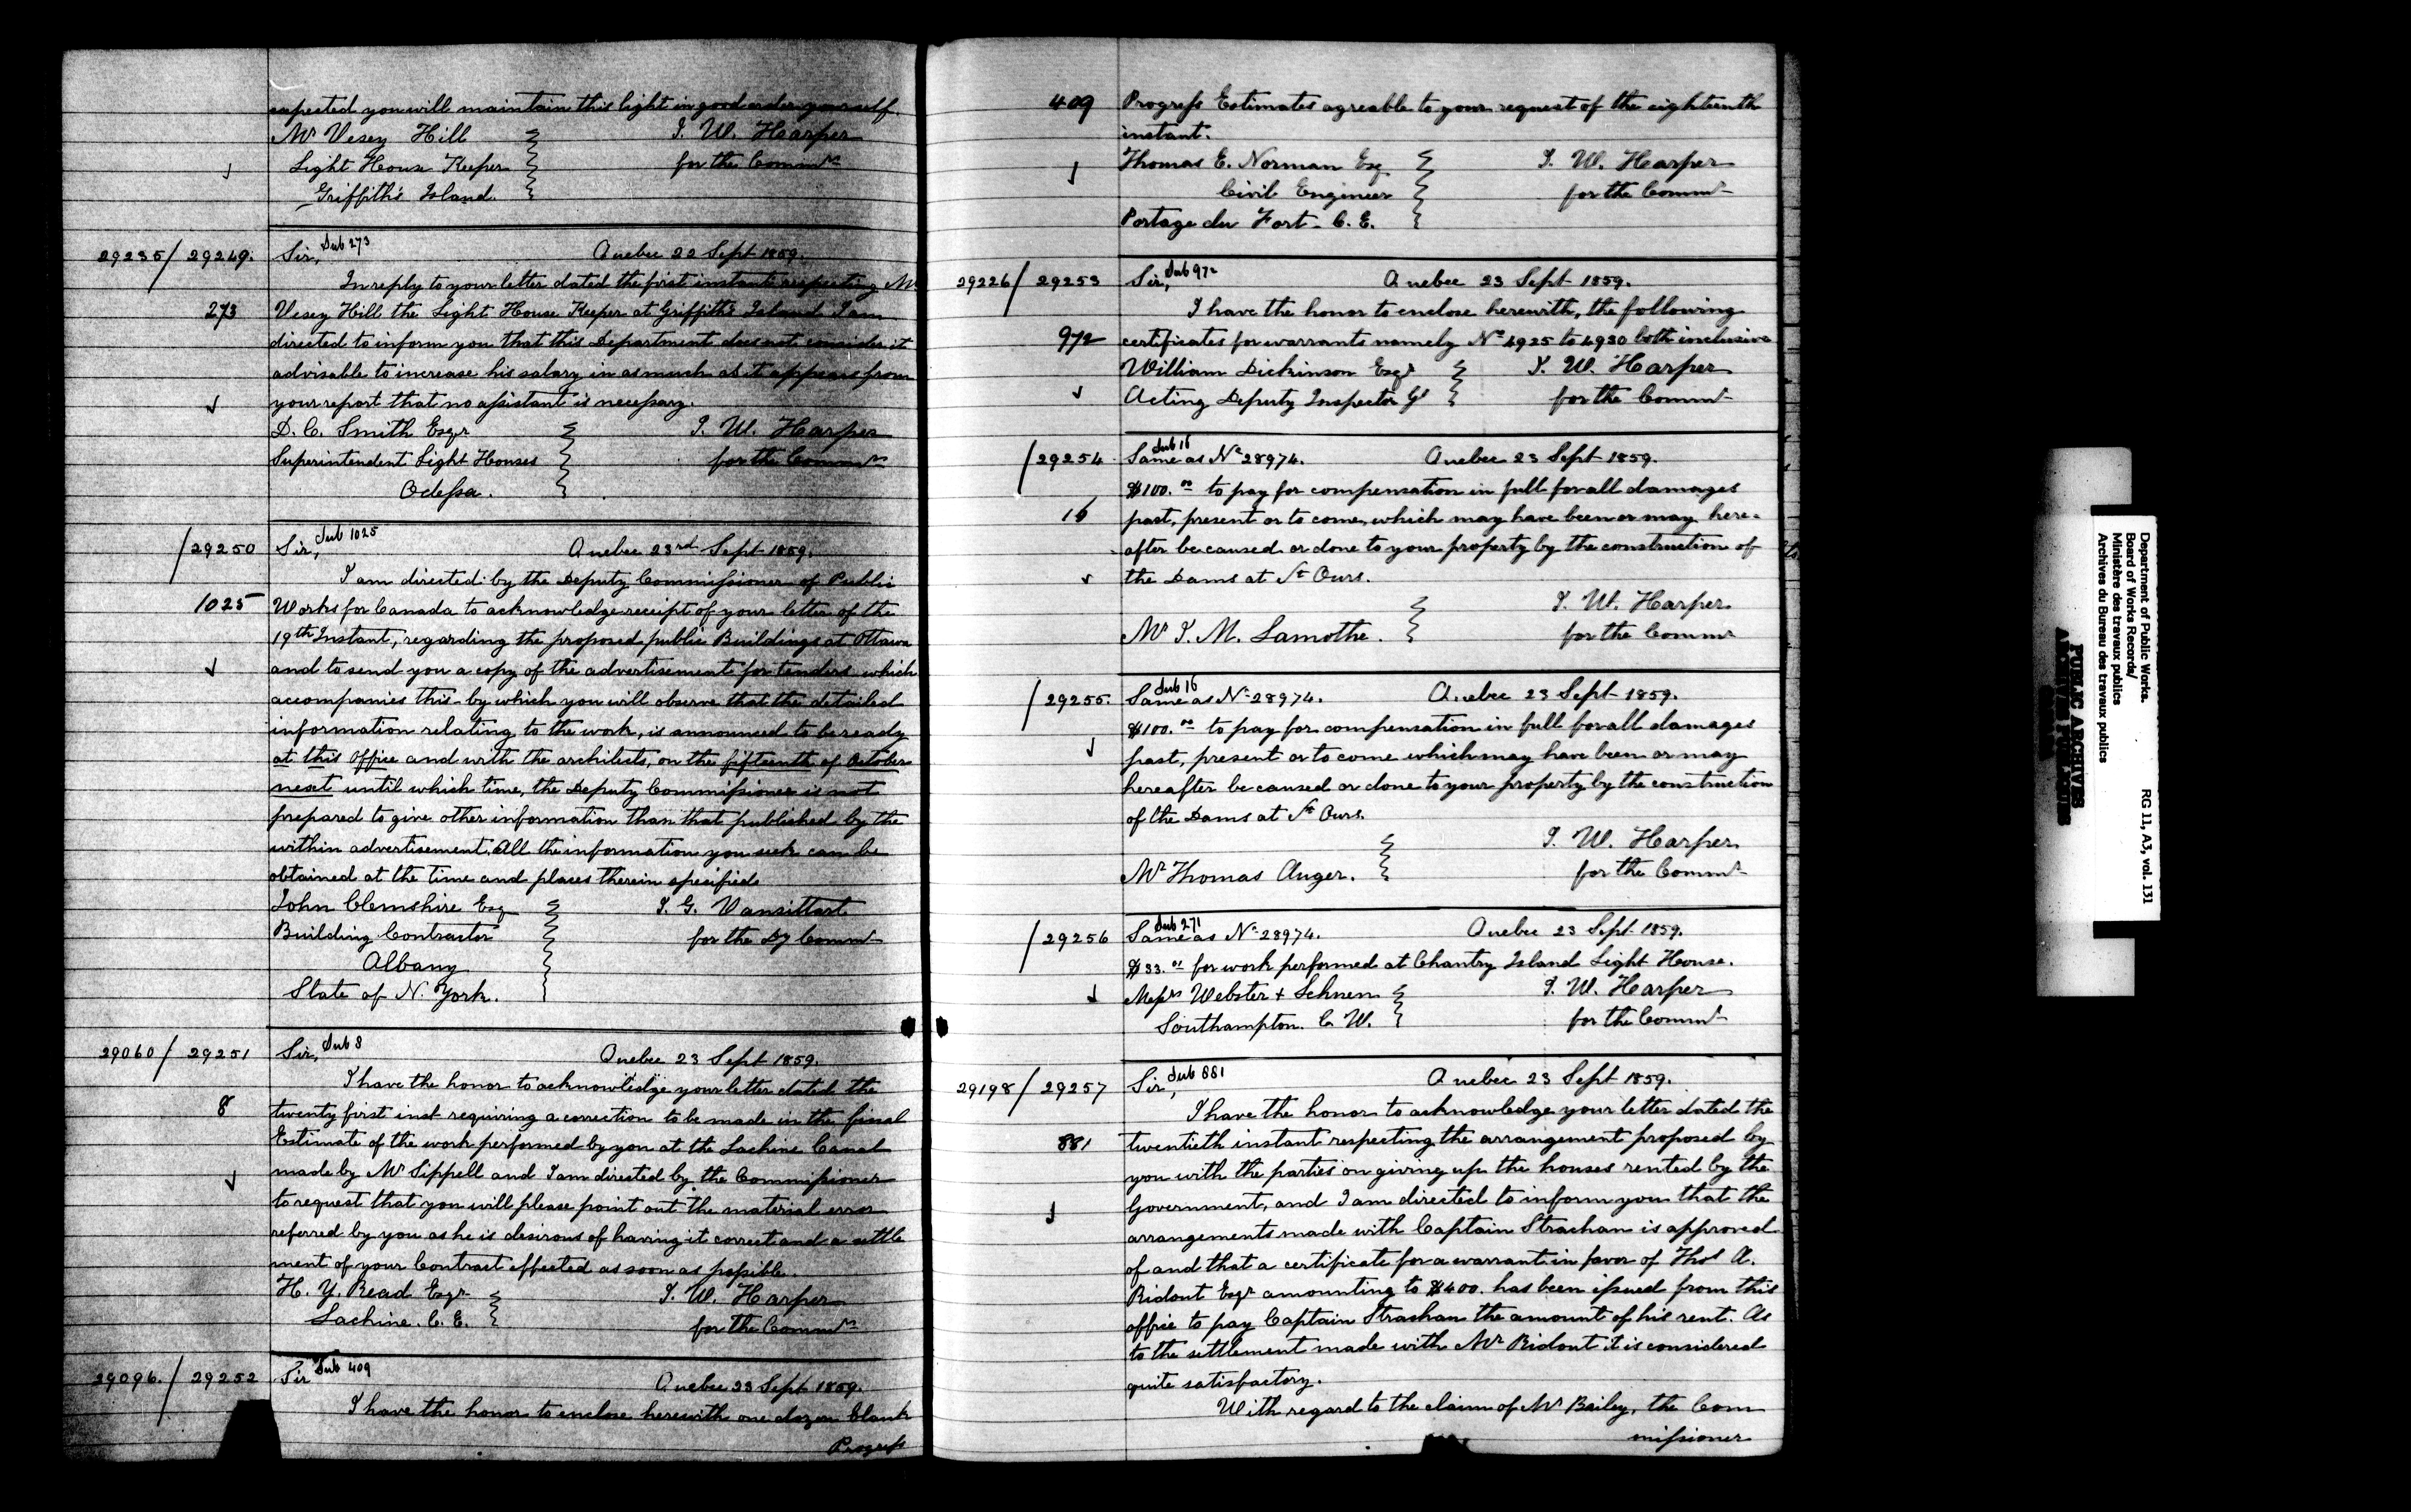 expected you will maintain this light in good order yourself.
Mr Vesey Hill
T. W. Harper
Light House Keeper
for the Commrs
Griffith's Island.
29235/29249.
Sir, Sub 273
Quebec 22 Sept 1859.
In reply to your letter dated the first instant respecting Mr
273
Vesey Hill the Light House Keeper at Griffith's Island I am
directed to inform you that this Department does not consider it
advisable to increase his salary in as much as it appears from
your report that no assistant is necessary.
D. C. Smith Esqr
T. W. Harper
Superintendent Light Houses
for the Commrs
Odessa.
/29250
Sir, Sub 1025
Quebec 23rd Sept 1859.
I am directed by the Deputy Commissioner of Public
1025
Works for Canada to acknowledge receipt of your letter of the
19th Instant, regarding the proposed public Buildings at Ottawa
and to send you a copy of the advertisement for tenders which
accompanies this by which you will observe that the detailed
information relating to the work, is announced to be ready
at this Office and with the architects, on the fifteenth of October
next until which time, the Deputy Commissioner is not
prepared to give other information than that published by the
within advertisement. All the information you seek can be
obtained at the time and places therein specified
John Clemshire Esq
T. G. Vansittart
Building Contractor
for the Dy Commr
Albany
State of N. York.
29060/29251
Sir, Sub 8
Quebec 23 Sept 1859.
I have the honor to acknowledge your letter dated the
8
twenty first inst requiring a correction to be made in the final
Estimate of the work performed by you at the Lachine Canal
made by Mr Sippell and I am directed by the Commissioner
to request that you will please point out the material error
referred by you as he is desirous of having it correct and a settle
ment of your Contract effected as soon as possible.
H. Y. Read Esqr
T. W. Harper
Lachine. C. E.
for the Commrs
29096./29252
Sir Sub 409
Quebec 23 Sept 1859.
I have the honor to enclose herewith one dozen blank
Progress
409
Progress Estimates agreable to your request of the eighteenth
instant.
Thomas E. Norman Esq
T. W. Harper
Civil Engineer
for the Commr
Portage du Fort - C. E.
29226/29253
Sir, Sub 972
Quebec 23 Sept 1859.
I have the honor to enclose herewith, the following
972
certificates for warrants namely No 4925 to 4930 both inclusive
William Dickinson Esqr
T. W. Harper
Acting Deputy Inspector Gl
for the Commr
/29254
Sub 16
Same as No 28974.
Quebec 23 Sept 1859.
$100.00 to pay for compensation in full for all damages
16
past, present or to come, which may have been or may here-
after be caused or done to your property by the construction of
the Dams at St Ours.
T. W. Harper
Mr T. M. Lamothe.
for the Commr
/29255.
Sub 16
Same as No 28974.
Quebec 23 Sept 1859.
$100.00 to pay for compensation in full for all damages
past, present or to come which may have been or may
hereafter be caused or done to your property by the construction
of the Dams at St Ours.
T. W. Harper
Mr Thomas Auger.
for the Commr
/29256
Sub 271
Same as No 28974.
Quebec 23 Sept 1859.
for work performed at Chantry Island Light House.
Messrs Webster +
T. W. Harper
Southampton. C. W.
for the Commr
29198/29257
Sir, Sub 881
Quebec 23 Sept 1859.
I have the honor to acknowledge your letter dated the
881
twentieth instant respecting the arrangement proposed by
you with the parties on giving up the houses rented by the
Government, and I am directed to inform you that the
arrangements made with Captain Strachan is approved
of and that a certificate for a warrant in favor of Thos A.
Ridout Esqr amounting to $400. has been issued from this
office to pay Captain Strachan the amount of his rent. As
to the settlement made with Mr Ridout it is considered
quite satisfactory.
With regard to the claim of Mr Bailey, the Com
missioner
Department of Public Works.
Board of Works Records/
Ministère des travaux publics
Archives du Bureau des travaux publics
RG 11, A3, vol. 131
PUBLIC ARCHIVES